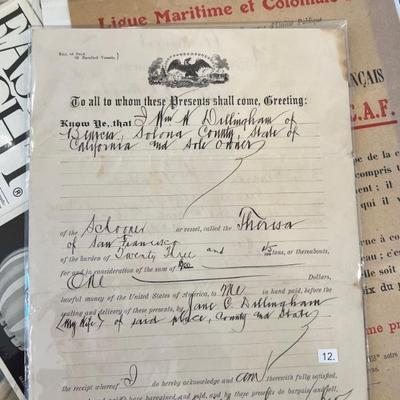 Ligue Maritime et Coloniale
EAS
IGHT
®
BILL OF SALE
OF Enrolled Vessels.
To all to whom these Presents shall come, Greeting:
Know Ye, that I Wm H Dillingham of
Benicia, Solona County, State of
California and Sole owner
of the Schooner or vessel, called the Theresa
of San Francisco
of the burden of Twenty Three and 45/100 tons, or thereabouts,
for and in consideration of the sum of
One Dollars,
lawful money of the United States of America, to me in hand paid, before the
sealing and delivery of these presents, by Jane C Dillingham
(My Wife) of said place, County and State
the receipt whereof I do hereby acknowledge and am therewith fully satisfied,
have bargained and sold, and by these presents do bargain and sell,
12.
NÇAIS
C.A.F.